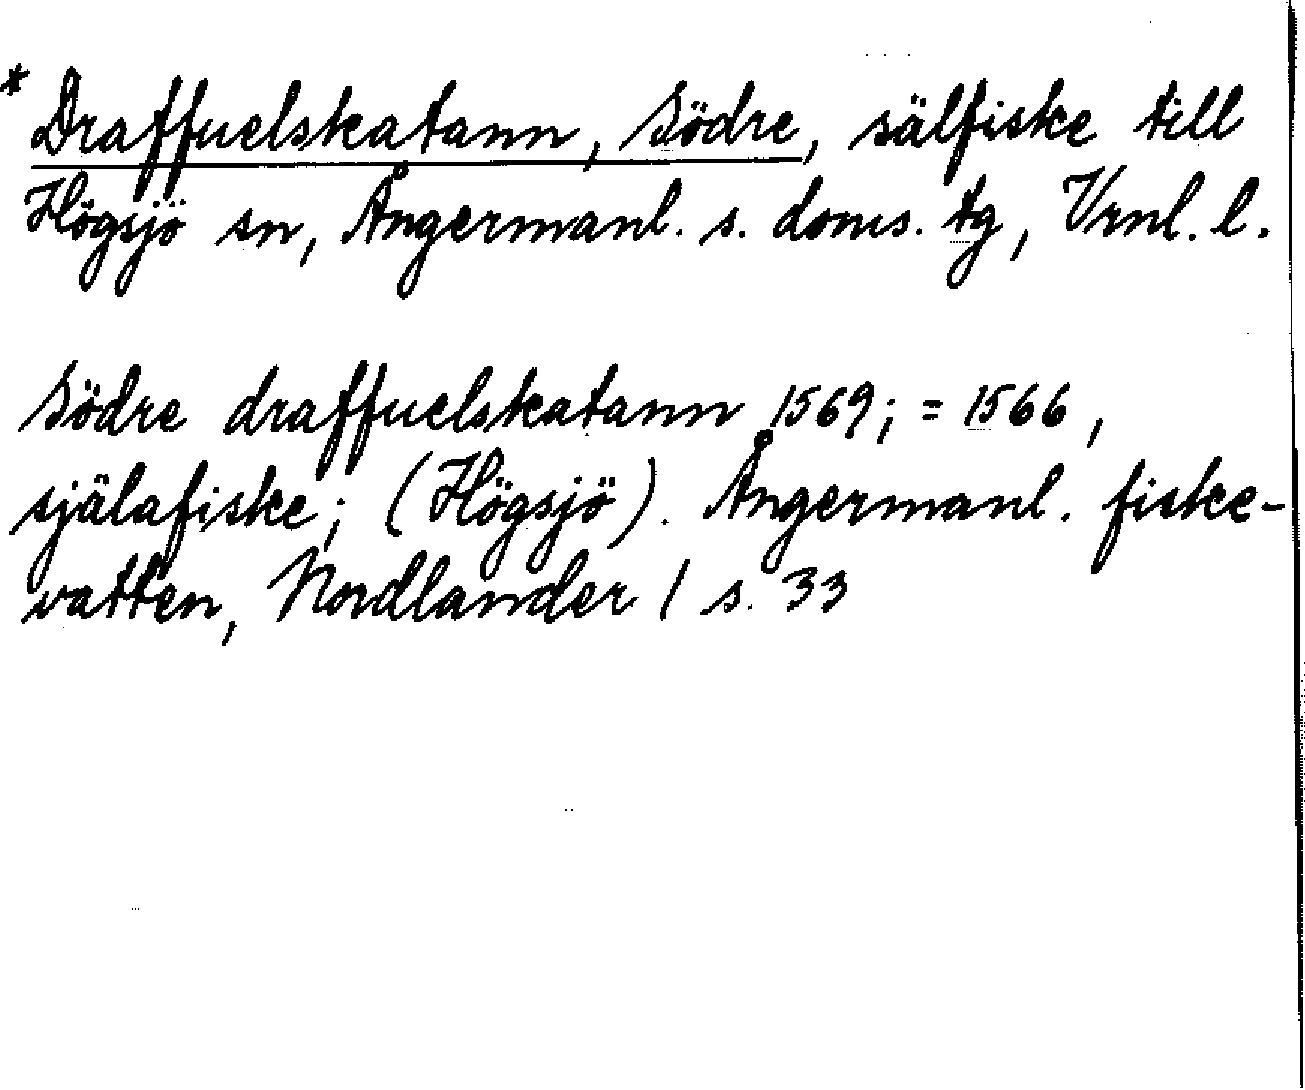 * Draffuelskatann, Södre, sälfiske till
Högsjö sn, Ångermanl. s. doms. tg, Vrnl. l.
Södre draffuelskatann 1569; = 1566,
själafiske; (Högsjö). Ångermanl. fiske-
vatten, Nordlander / s. 33